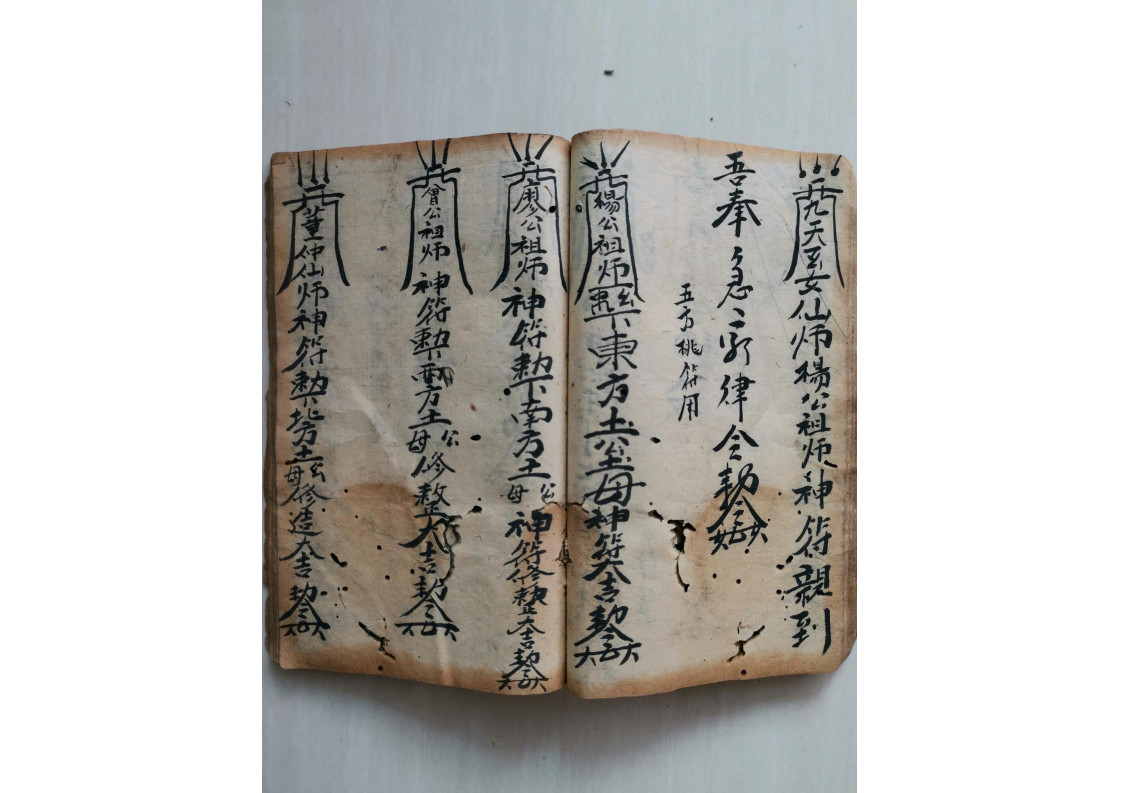 九天玄女仙师杨公祖师神符親到
吾奉急々而律令勅令
五方桃符用
楊公祖师 勅下東方土公土母神符大吉勅令
廖公祖师神符勅下南方土公母神符修整大吉勅令
曾公祖师神符勅下西方土公母修整大吉勅令
董仲仙师神符勅下北方土公母修造大吉勅令